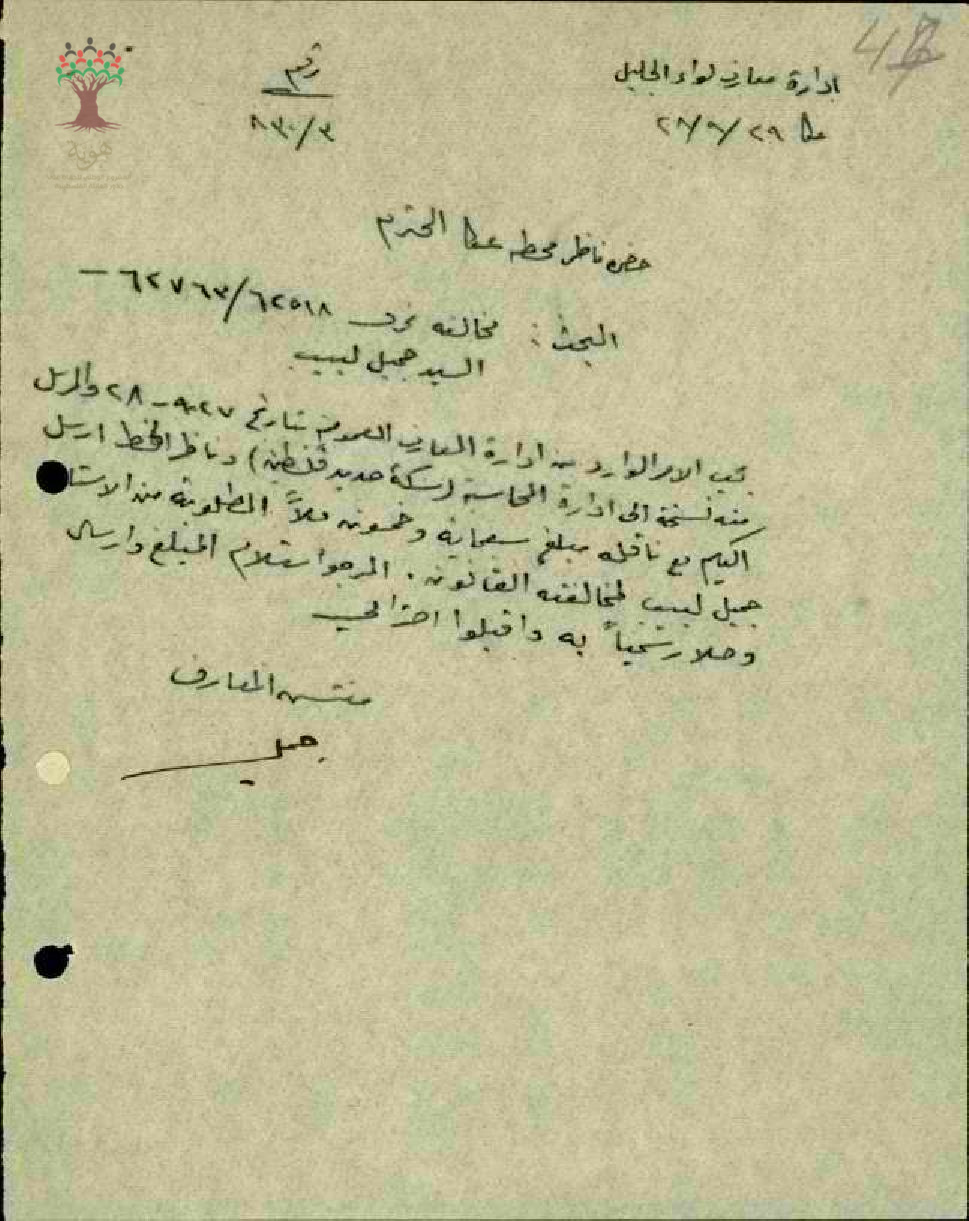 47
ادارة معارف لواء الجليل
عكا ٢٩/٩/٢٨
رقم
٨٣٠/٣
حضرة ناظر محطة عكا المحترم
البحث : مخالفة نمرة ٦٢٧٦٣/٦٢٥١٨ –
السيد جميل لبيب
بحسب الامر الوارد من ادارة المعارف العمومية بتاريخ ٢٧-٩-٢٨ والمرسل
منه نسخة الى ادارة المحاسبة (سكة حديد فلسطين) وناظر المحطة ارسل
اليكم مع ناقله مبلغ سبعماية وخمسون ملاً المطلوبة من الاستاذ
جميل لبيب لمخالفته القانون . المرجو استلام المبلغ وارسال
وصلا رسمياً به واقبلوا احترامي
مفتش المعارف
جميل
هوية